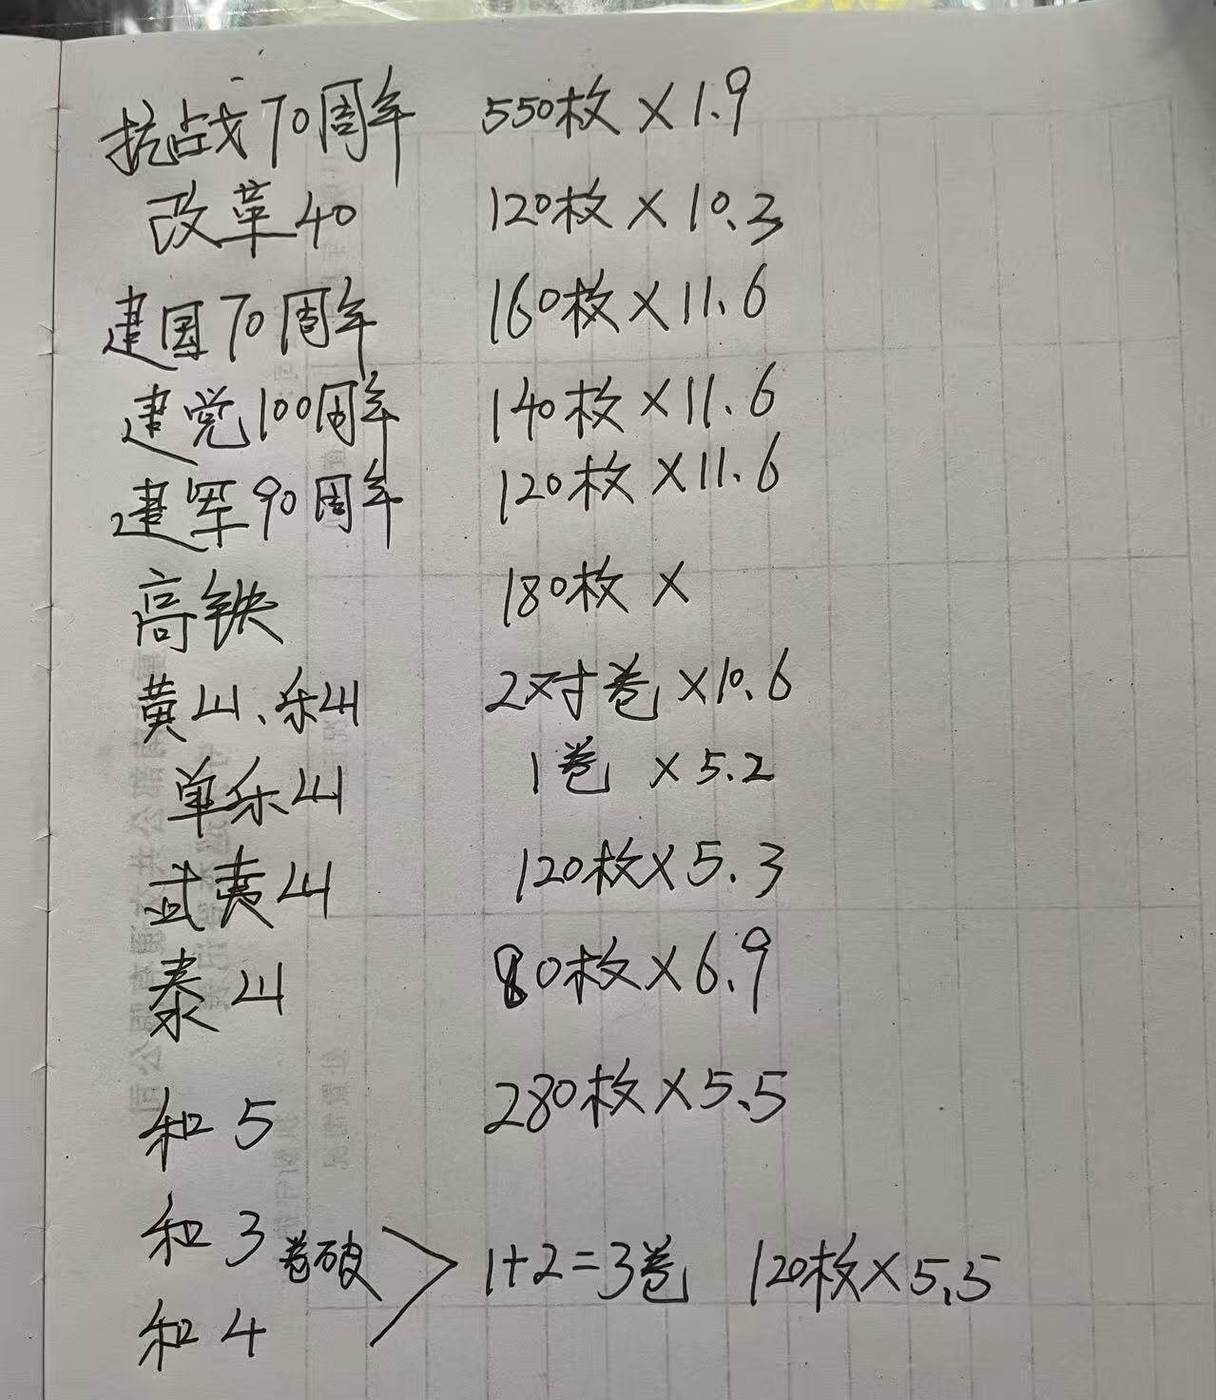 抗战70周年 550枚×1.9
改革40 120枚×10.3
建国70周年 160枚×11.6
建党100周年 140枚×11.6
建军90周年 120枚×11.6
高铁 180枚×
黄山、乐山 2对卷×10.6
单乐山 1卷 ×5.2
武夷山 120枚×5.3
泰山 80枚×6.9
和5 280枚×5.5
和3卷破
和4
1+2=3卷 120枚×5.5